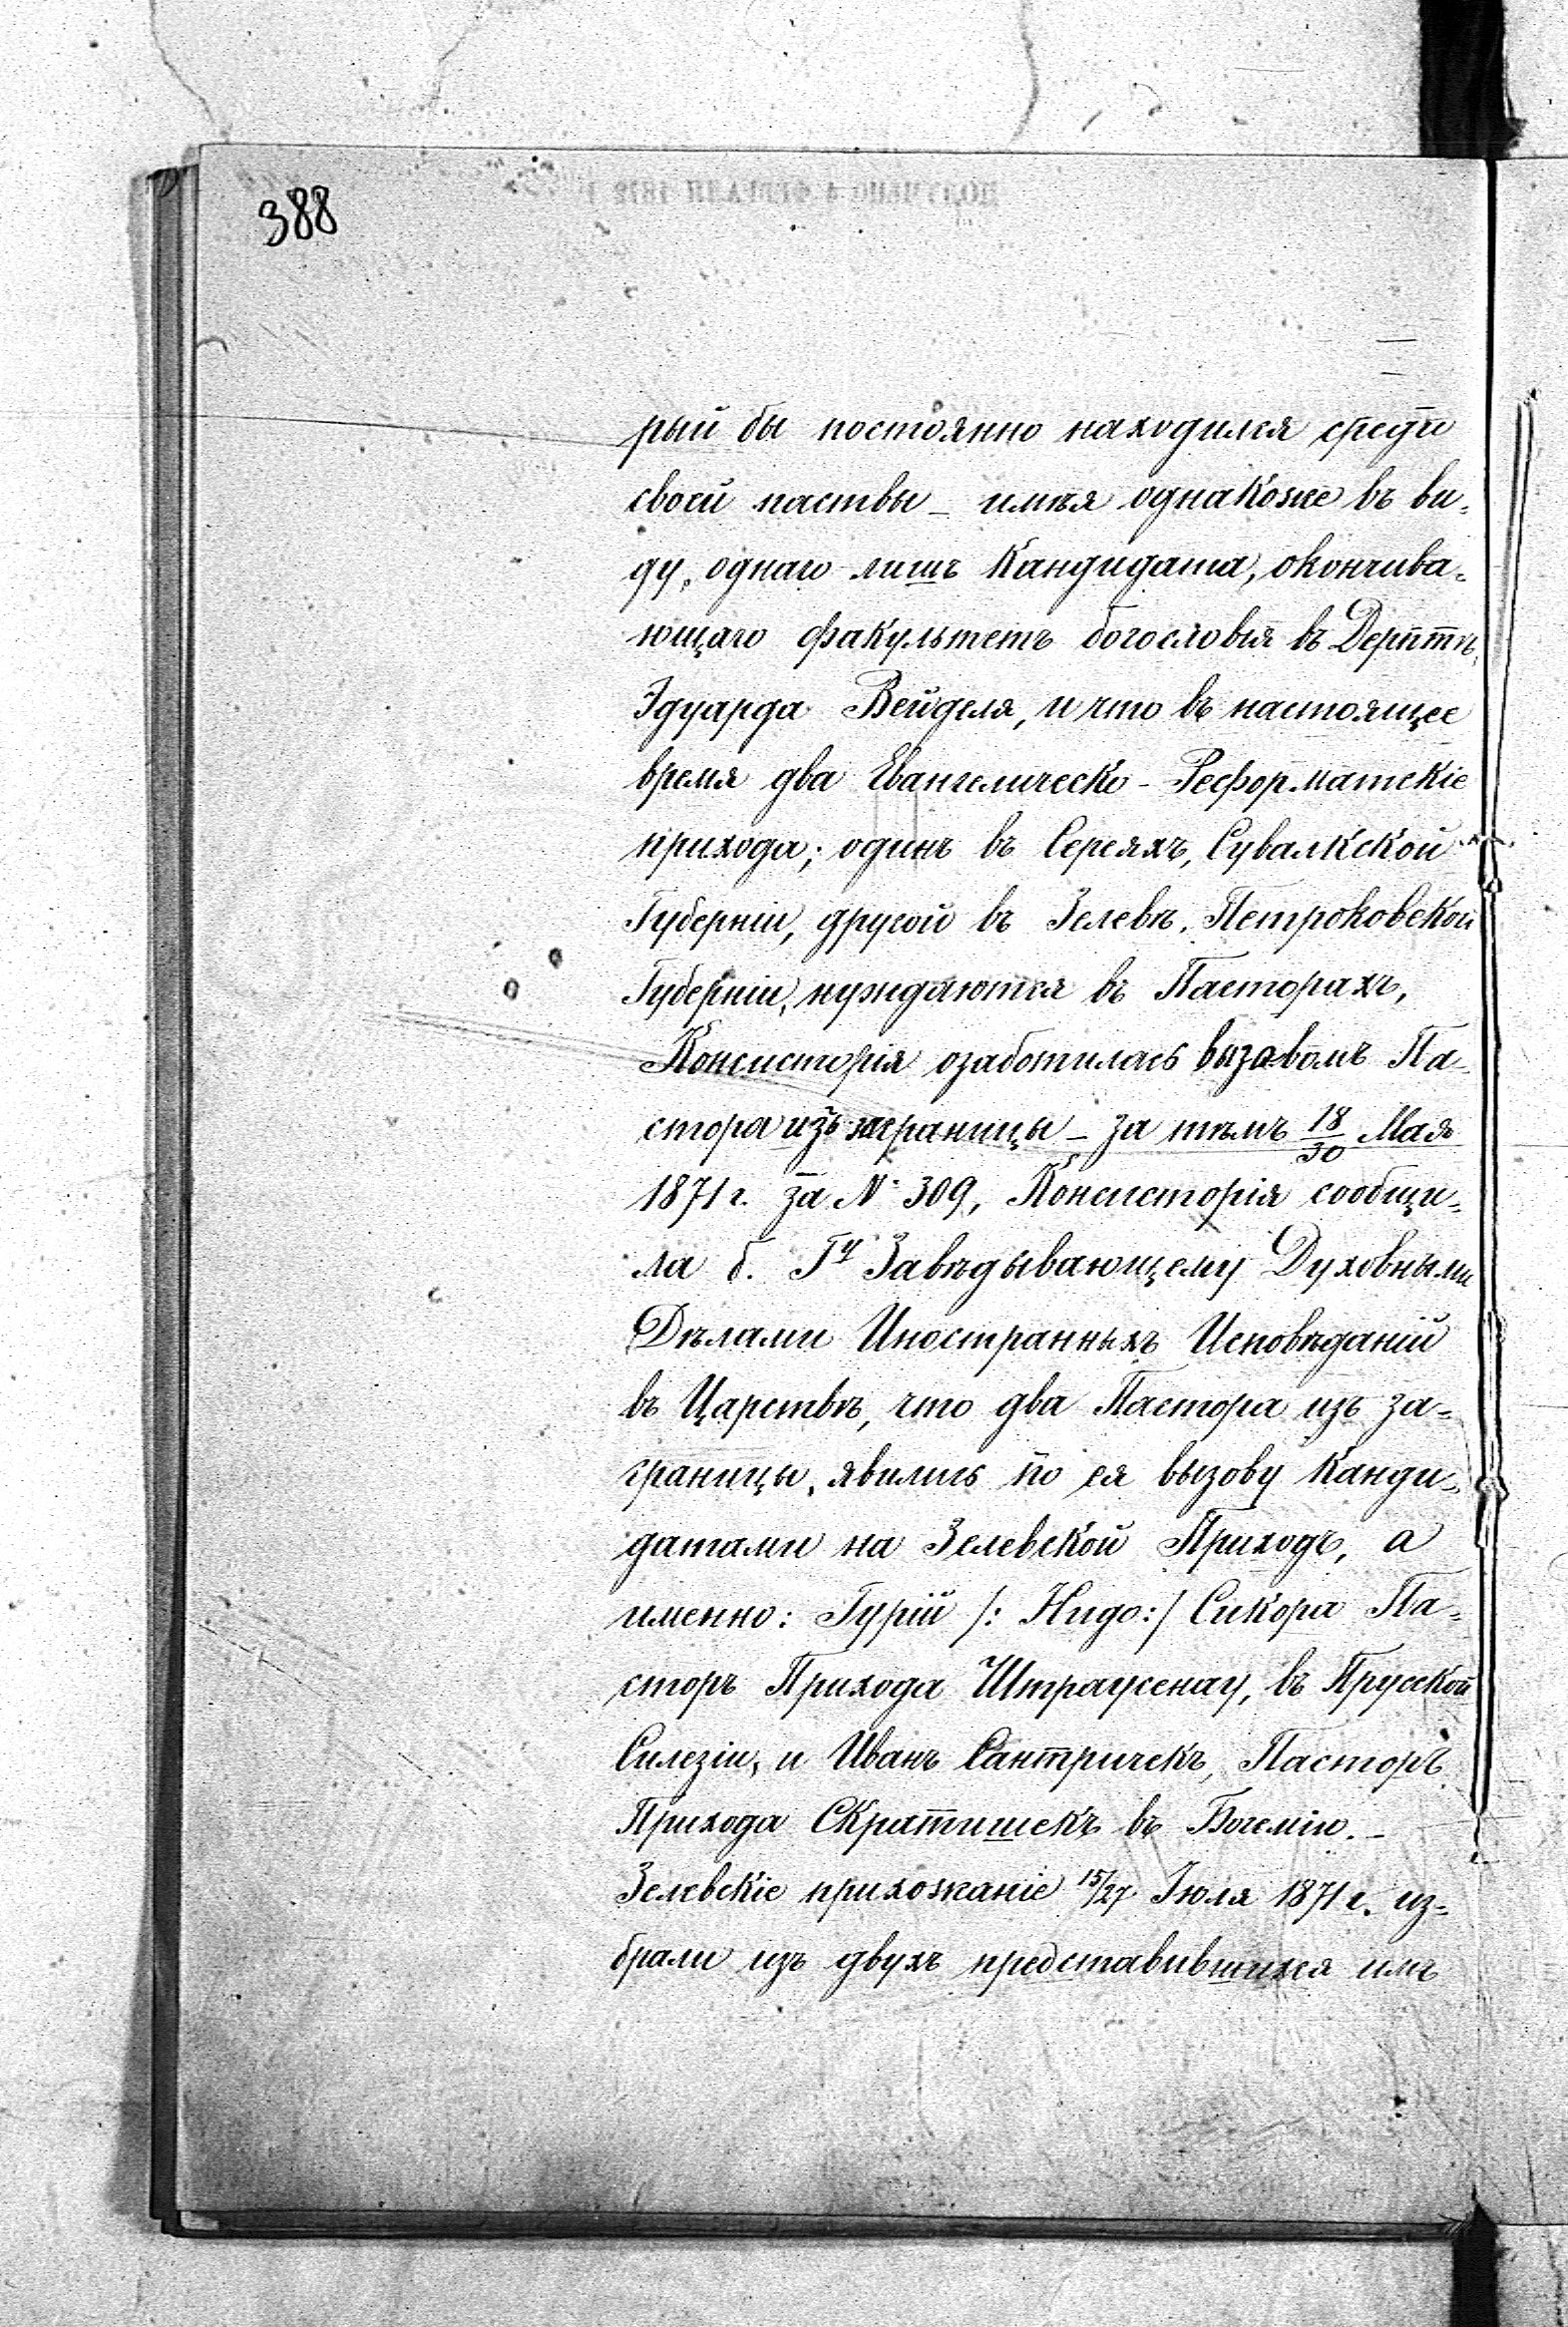 388
рый бы постоянно находился среди
своей паствы _ имѣя однакоже въ ви-
ду, однаго лишъ Кандидата, окончива-
ющаго факультетъ богословія въ Дерптѣ,
Эдуарда Вейделя, и что въ настоящее
время два Евангелическо-Реформатскіе
прихода; одинъ въ Сереяхъ, Сувалкской
Губерніи, другой въ Зелевѣ, Петроковской
Губерніи, нуждаются въ Пасторахъ,
Консисторія озаботилась вызовомъ Па-
стора изъ заграницы _ За тѣмъ 18/30 Мая
1871 г. за № 309, Консисторія сообщи-
ла б. Гу Завѣдывающему Духовными
Дѣлами Иностранныхъ Исповѣданій
въ Царствѣ, что два Пастора изъ за-
границы, явились по ея вызову канди-
датами на Зелевской Приходъ, а
именно: Гурій /: Hugo :/ Сикора Па-
сторъ Прихода Штраусенау, въ Прусской
Силезіи, и Иванъ Сантричекъ, Пасторъ
Прихода Скратишекъ въ Богеміи. _
Зелевскіе прихожаніе 15/27 Іюля 1871 г. из-
брали изъ двухъ представившихся имъ